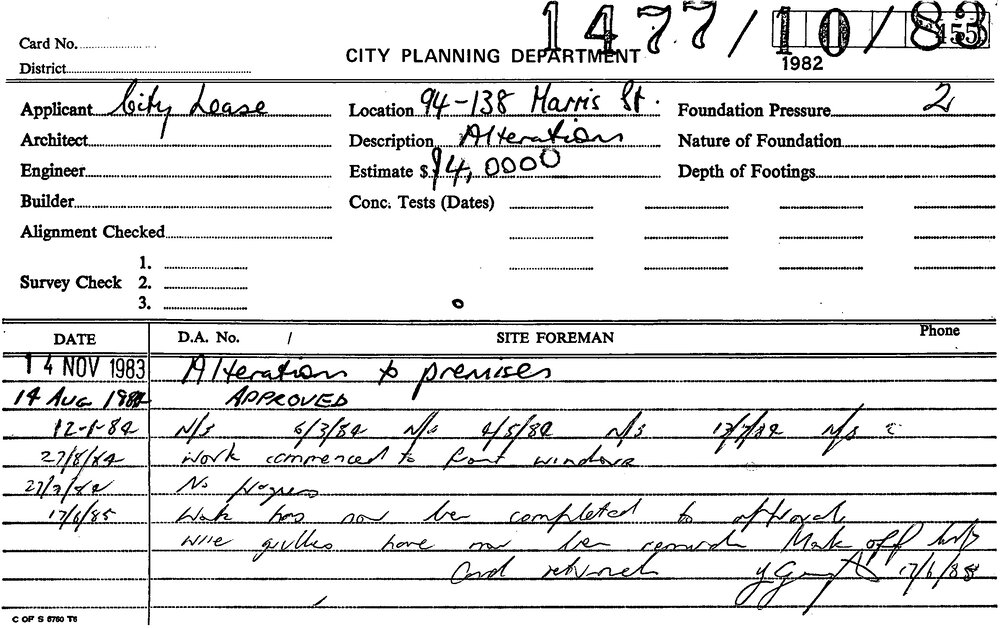 1477/10/83
Card No.
155
District
CITY PLANNING DEPARTMENT
1982
Applicant City Lease
Location 94-138 Harris St.
Foundation Pressure 2
Architect
Description Alterations
Nature of Foundation
Engineer
Estimate $ 14,0000
Depth of Footings
Builder
Conc. Tests (Dates)
Alignment Checked
1.
Survey Check 2.
3.
DATE D.A. No. / SITE FOREMAN Phone
14 NOV 1983 Alterations to premises
14 AUG 1984 APPROVED
12-1-84 N/S 6/3/84 N/S 4/5/84 N/S 13/7/84 N/S
27/8/84 Work commenced to front windows
No progress
17/6/85 Work has now been completed to approval
have now been Mark off
Card returned 17/6/85
C OF S 6760 T6